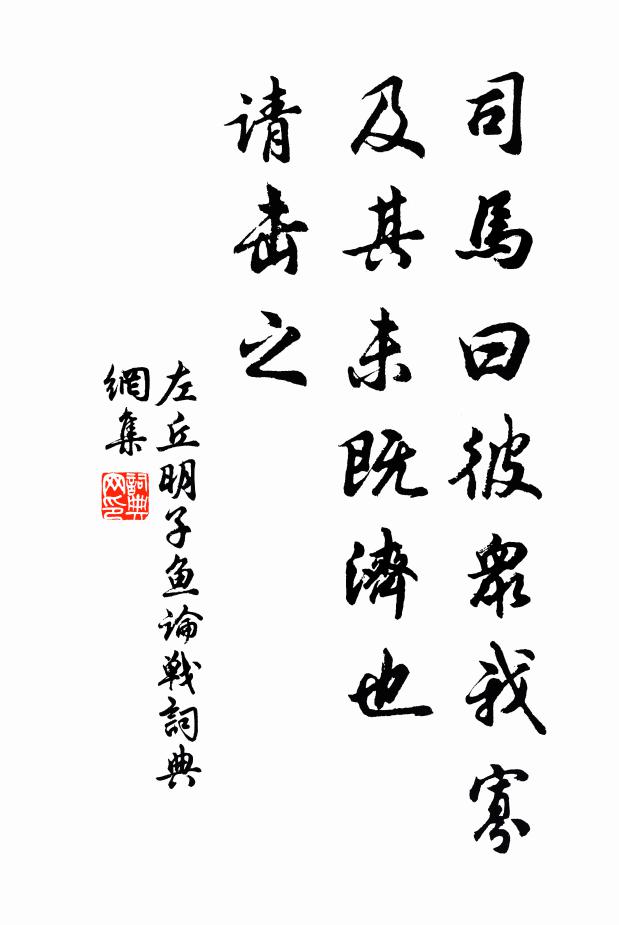 司馬曰彼眾我寡
及其未既濟也
请击之
左丘明子鱼論戰詞典
網集
詞典
网印